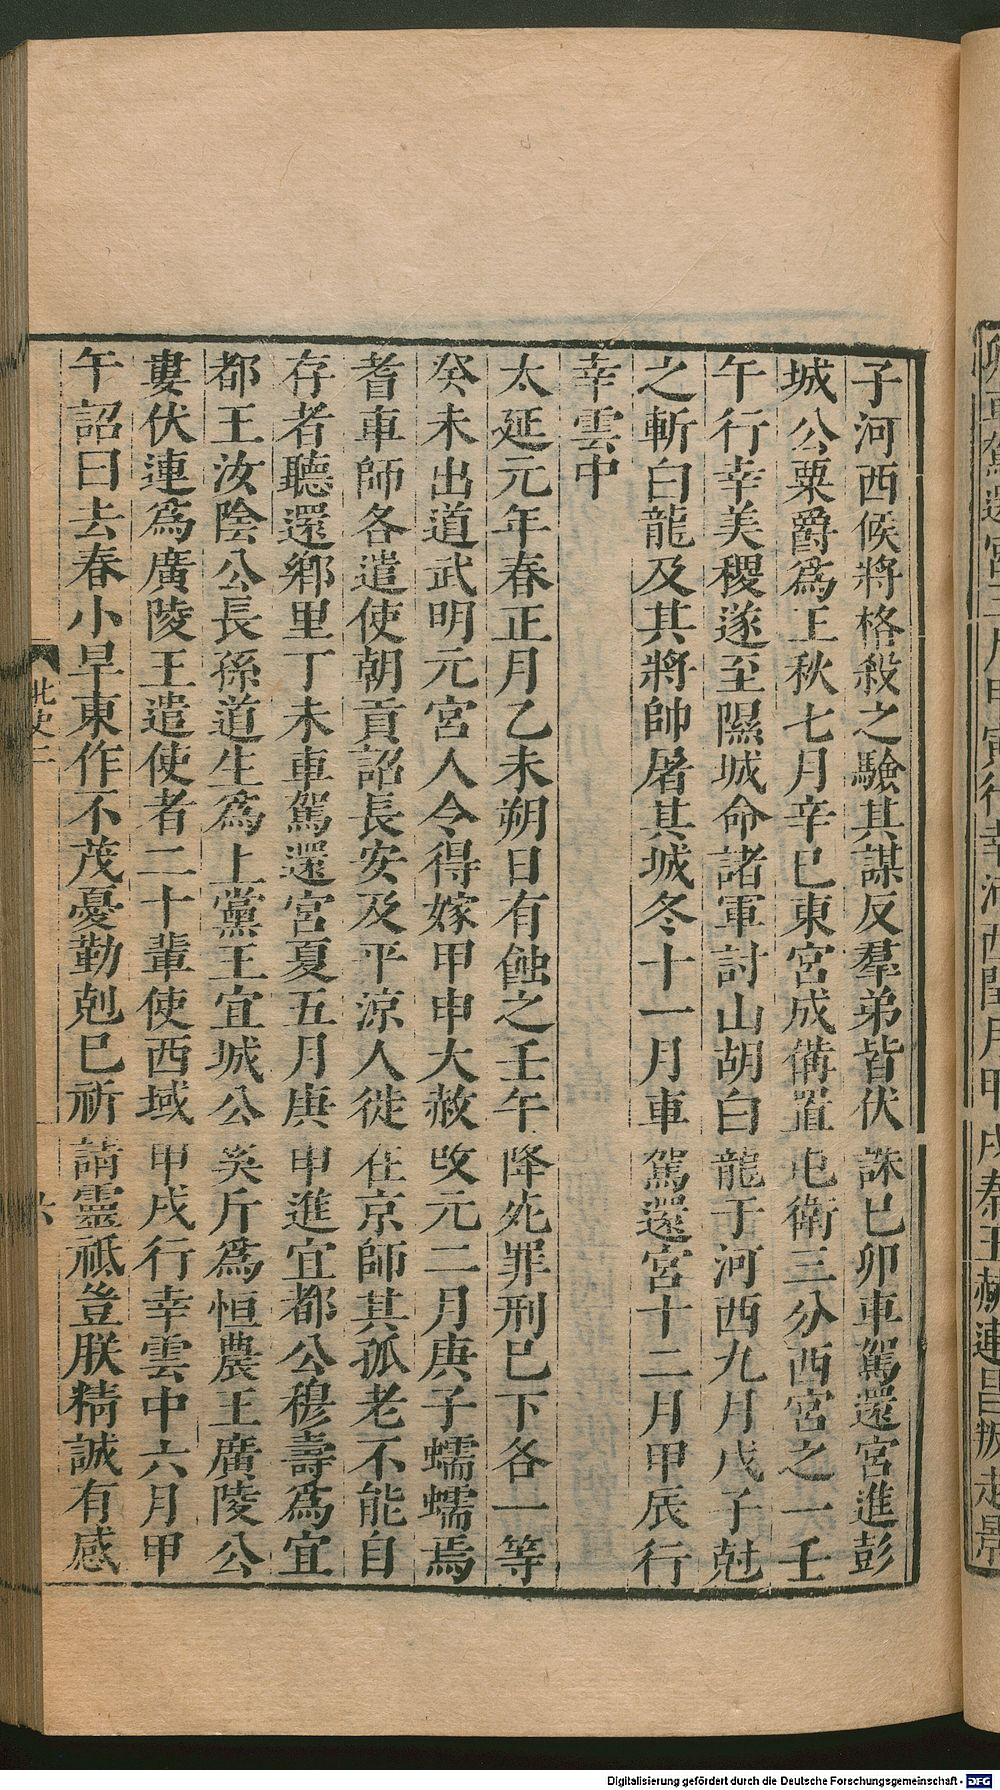 子河西候將格殺之驗其謀反羣弟皆伏誅巳卯車駕還宮進彭
城公粟爵爲王秋七月辛巳東宮成備置屯衛三分西宮之一壬
午行幸美稷遂至隰城命諸軍討山胡白龍于河西九月戊子尅
之斬白龍及其將帥屠其城冬十一月車駕還宮十二月甲辰行
幸雲中
太延元年春正月乙未朔日有蝕之壬午降死罪刑巳下各一等
癸未出道武明元宮人令得嫁甲申大赦改元二月庚子蠕蠕焉
耆車師各遣使朝貢詔長安及平涼人徙在京師其孤老不能自
存者聽還鄉里丁未車駕還宮夏五月庚申進宜都公穆壽爲宜
都王汝陰公長孫道生爲上黨王宜城公奚斤爲恒農王廣陵公
婁伏連爲廣陵王遣使者二十輩使西域甲戌行幸雲中六月甲
午詔曰去春小旱東作不茂憂勤剋巳祈請靈祗豈朕精誠有感
北史二
六
Digitalisierung gefördert durch die Deutsche Forschungsgemeinschaft - DFG